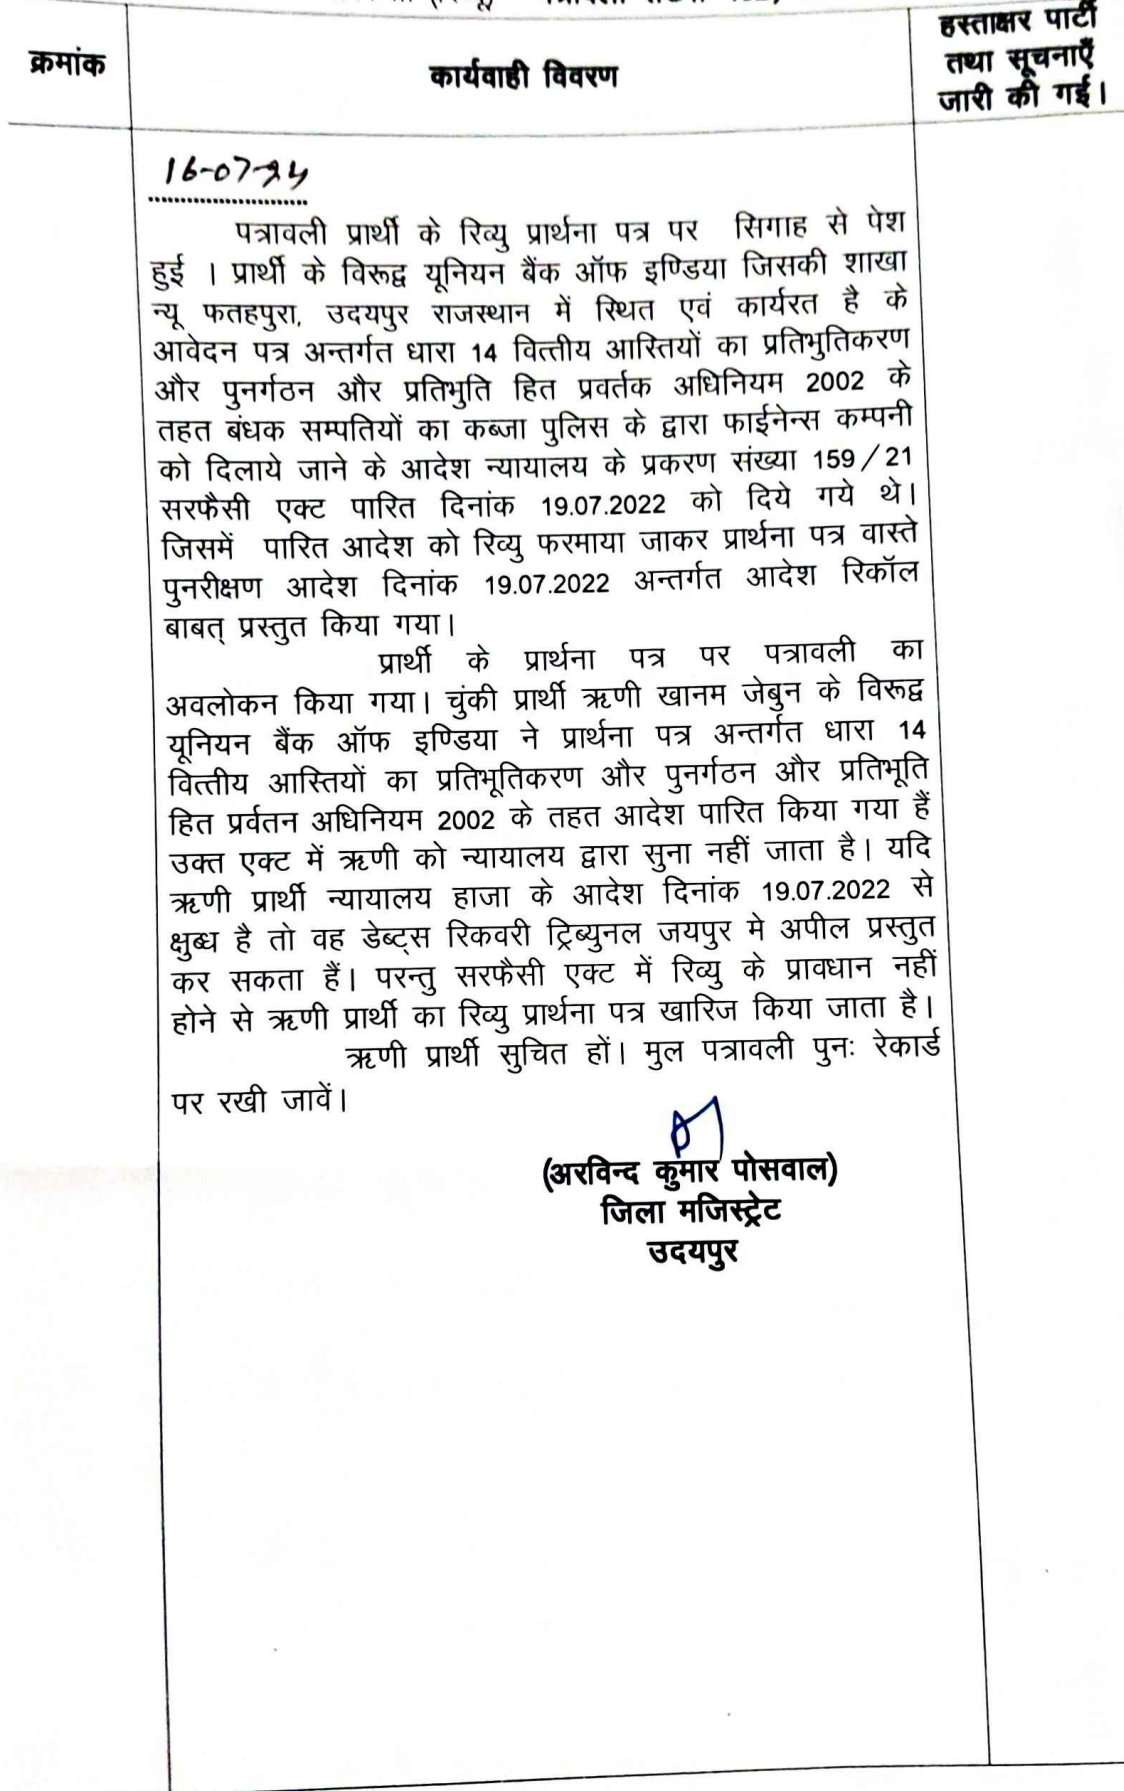 क्रमांक
कार्यवाही विवरण
हस्ताक्षर पार्टी
तथा सूचनाएँ
जारी की गई।
16-07-24
पत्रावली प्रार्थी के रिव्यु प्रार्थना पत्र पर सिगाह से पेश
हुई । प्रार्थी के विरूद्व यूनियन बैंक ऑफ इण्डिया जिसकी शाखा
न्यू फतहपुरा, उदयपुर राजस्थान में स्थित एवं कार्यरत है के
आवेदन पत्र अन्तर्गत धारा 14 वित्तीय आस्तियों का प्रतिभुतिकरण
और पुनर्गठन और प्रतिभुति हित प्रवर्तक अधिनियम 2002 के
तहत बंधक सम्पतियों का कब्जा पुलिस के द्वारा फाईनेन्स कम्पनी
को दिलाये जाने के आदेश न्यायालय के प्रकरण संख्या 159/21
सरफैसी एक्ट पारित दिनांक 19.07.2022 को दिये गये थे।
जिसमें पारित आदेश को रिव्यु फरमाया जाकर प्रार्थना पत्र वास्ते
पुनरीक्षण आदेश दिनांक 19.07.2022 अन्तर्गत आदेश रिकॉल
बाबत् प्रस्तुत किया गया।
प्रार्थी के प्रार्थना पत्र पर पत्रावली का
अवलोकन किया गया। चुंकी प्रार्थी ऋणी खानम जेबुन के विरूद्व
यूनियन बैंक ऑफ इण्डिया ने प्रार्थना पत्र अन्तर्गत धारा 14
वित्तीय आस्तियों का प्रतिभूतिकरण और पुनर्गठन और प्रतिभूति
हित प्रर्वतन अधिनियम 2002 के तहत आदेश पारित किया गया हैं
उक्त एक्ट में ऋणी को न्यायालय द्वारा सुना नहीं जाता है। यदि
ऋणी प्रार्थी न्यायालय हाजा के आदेश दिनांक 19.07.2022 से
क्षुब्ध है तो वह डेब्ट्स रिकवरी ट्रिब्युनल जयपुर मे अपील प्रस्तुत
कर सकता हैं। परन्तु सरफैसी एक्ट में रिव्यु के प्रावधान नहीं
होने से ऋणी प्रार्थी का रिव्यु प्रार्थना पत्र खारिज किया जाता है।
ऋणी प्रार्थी सुचित हों। मुल पत्रावली पुनः रेकार्ड
पर रखी जावें।
(अरविन्द कुमार पोसवाल)
जिला मजिस्ट्रेट
उदयपुर